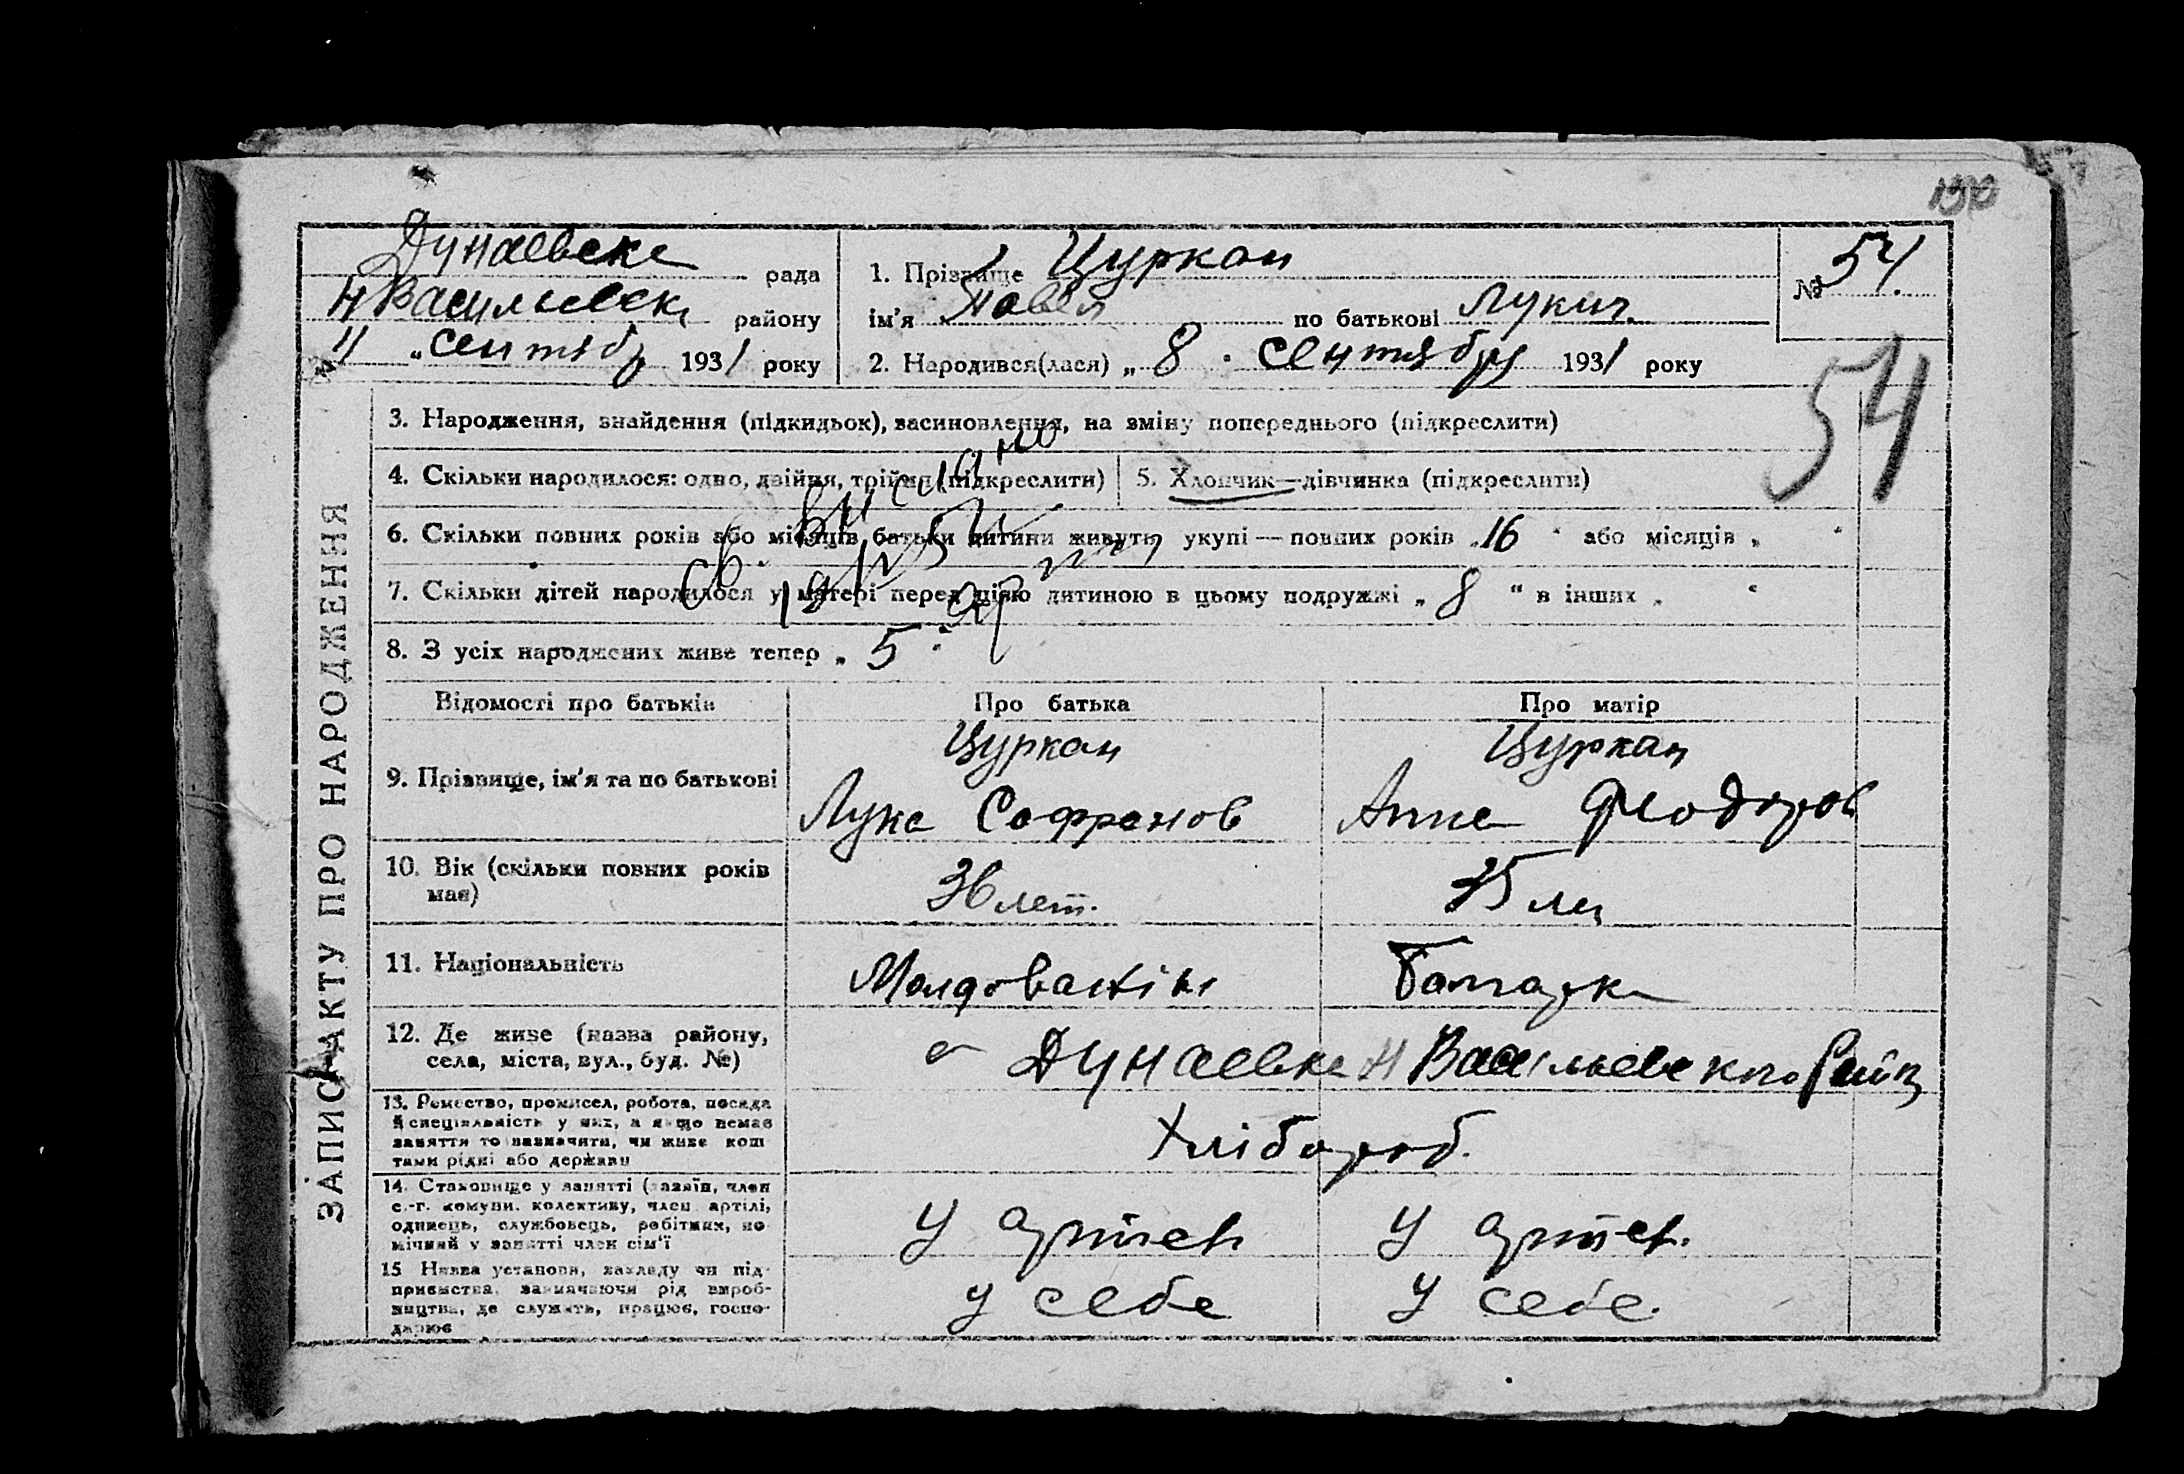 130
Дунаевска рада
Н Васильевск району
"11" сентябр 1931 року
1. Прізвище Цуркан
ім'я Павел по батькові Лукич.
2. Народився(лася) „ 8 " сентября 1931 року
№ 54.
54
ЗАПИС АКТУ ПРО НАРОДЖЕННЯ
3. Народження, знайдення (підкидьок), васиновлення, на зміну попереднього (підкреслити)
4. Скільки народилося: одно, двійня, трійня (підкреслити)
5. Хлопчик—дівчинка (підкреслити)
6. Скільки повних років або місяців батьки дитини живуть укупі — повних років „ 16 " або місяців „ "
7. Скільки дітей народилося у матері перед цією дитиною в цьому подружжі „ 8 " в інших „ "
8. З усіх народжених живе тепер „ 5 "
Відомості про батьків Про батька Про матір
9. Прізвище, ім'я та по батькові
Цуркан
Лука Сафронов
Цуркан
Анна Феодоров
10. Вік (скільки повних років має)
36 лет.
35 лет
11. Національність
Молдованін
Болгарка
12. Де живе (назва району,
села, міста, вул., буд. №)
с Дунаевка Н Васильевского Район
13. Ремество, промисел, робота, посада
й спеціяльність у них, а якщо немає
заняття то визначити, чи живе кош
тами рідні або держави
Хлібороб.
14. Становище у занятті (хазяїн, член
с.-г. комуни, колективу, член артілі,
одинець, службовець, робітник, по
мічний у занятті член сім'ї
У артел
У артел.
15 Назва установи, закладу чи під-
приємства, зазначаючи рід вироб-
ництва, де служить, працює, госпо-
дарює
у себе
у себе.